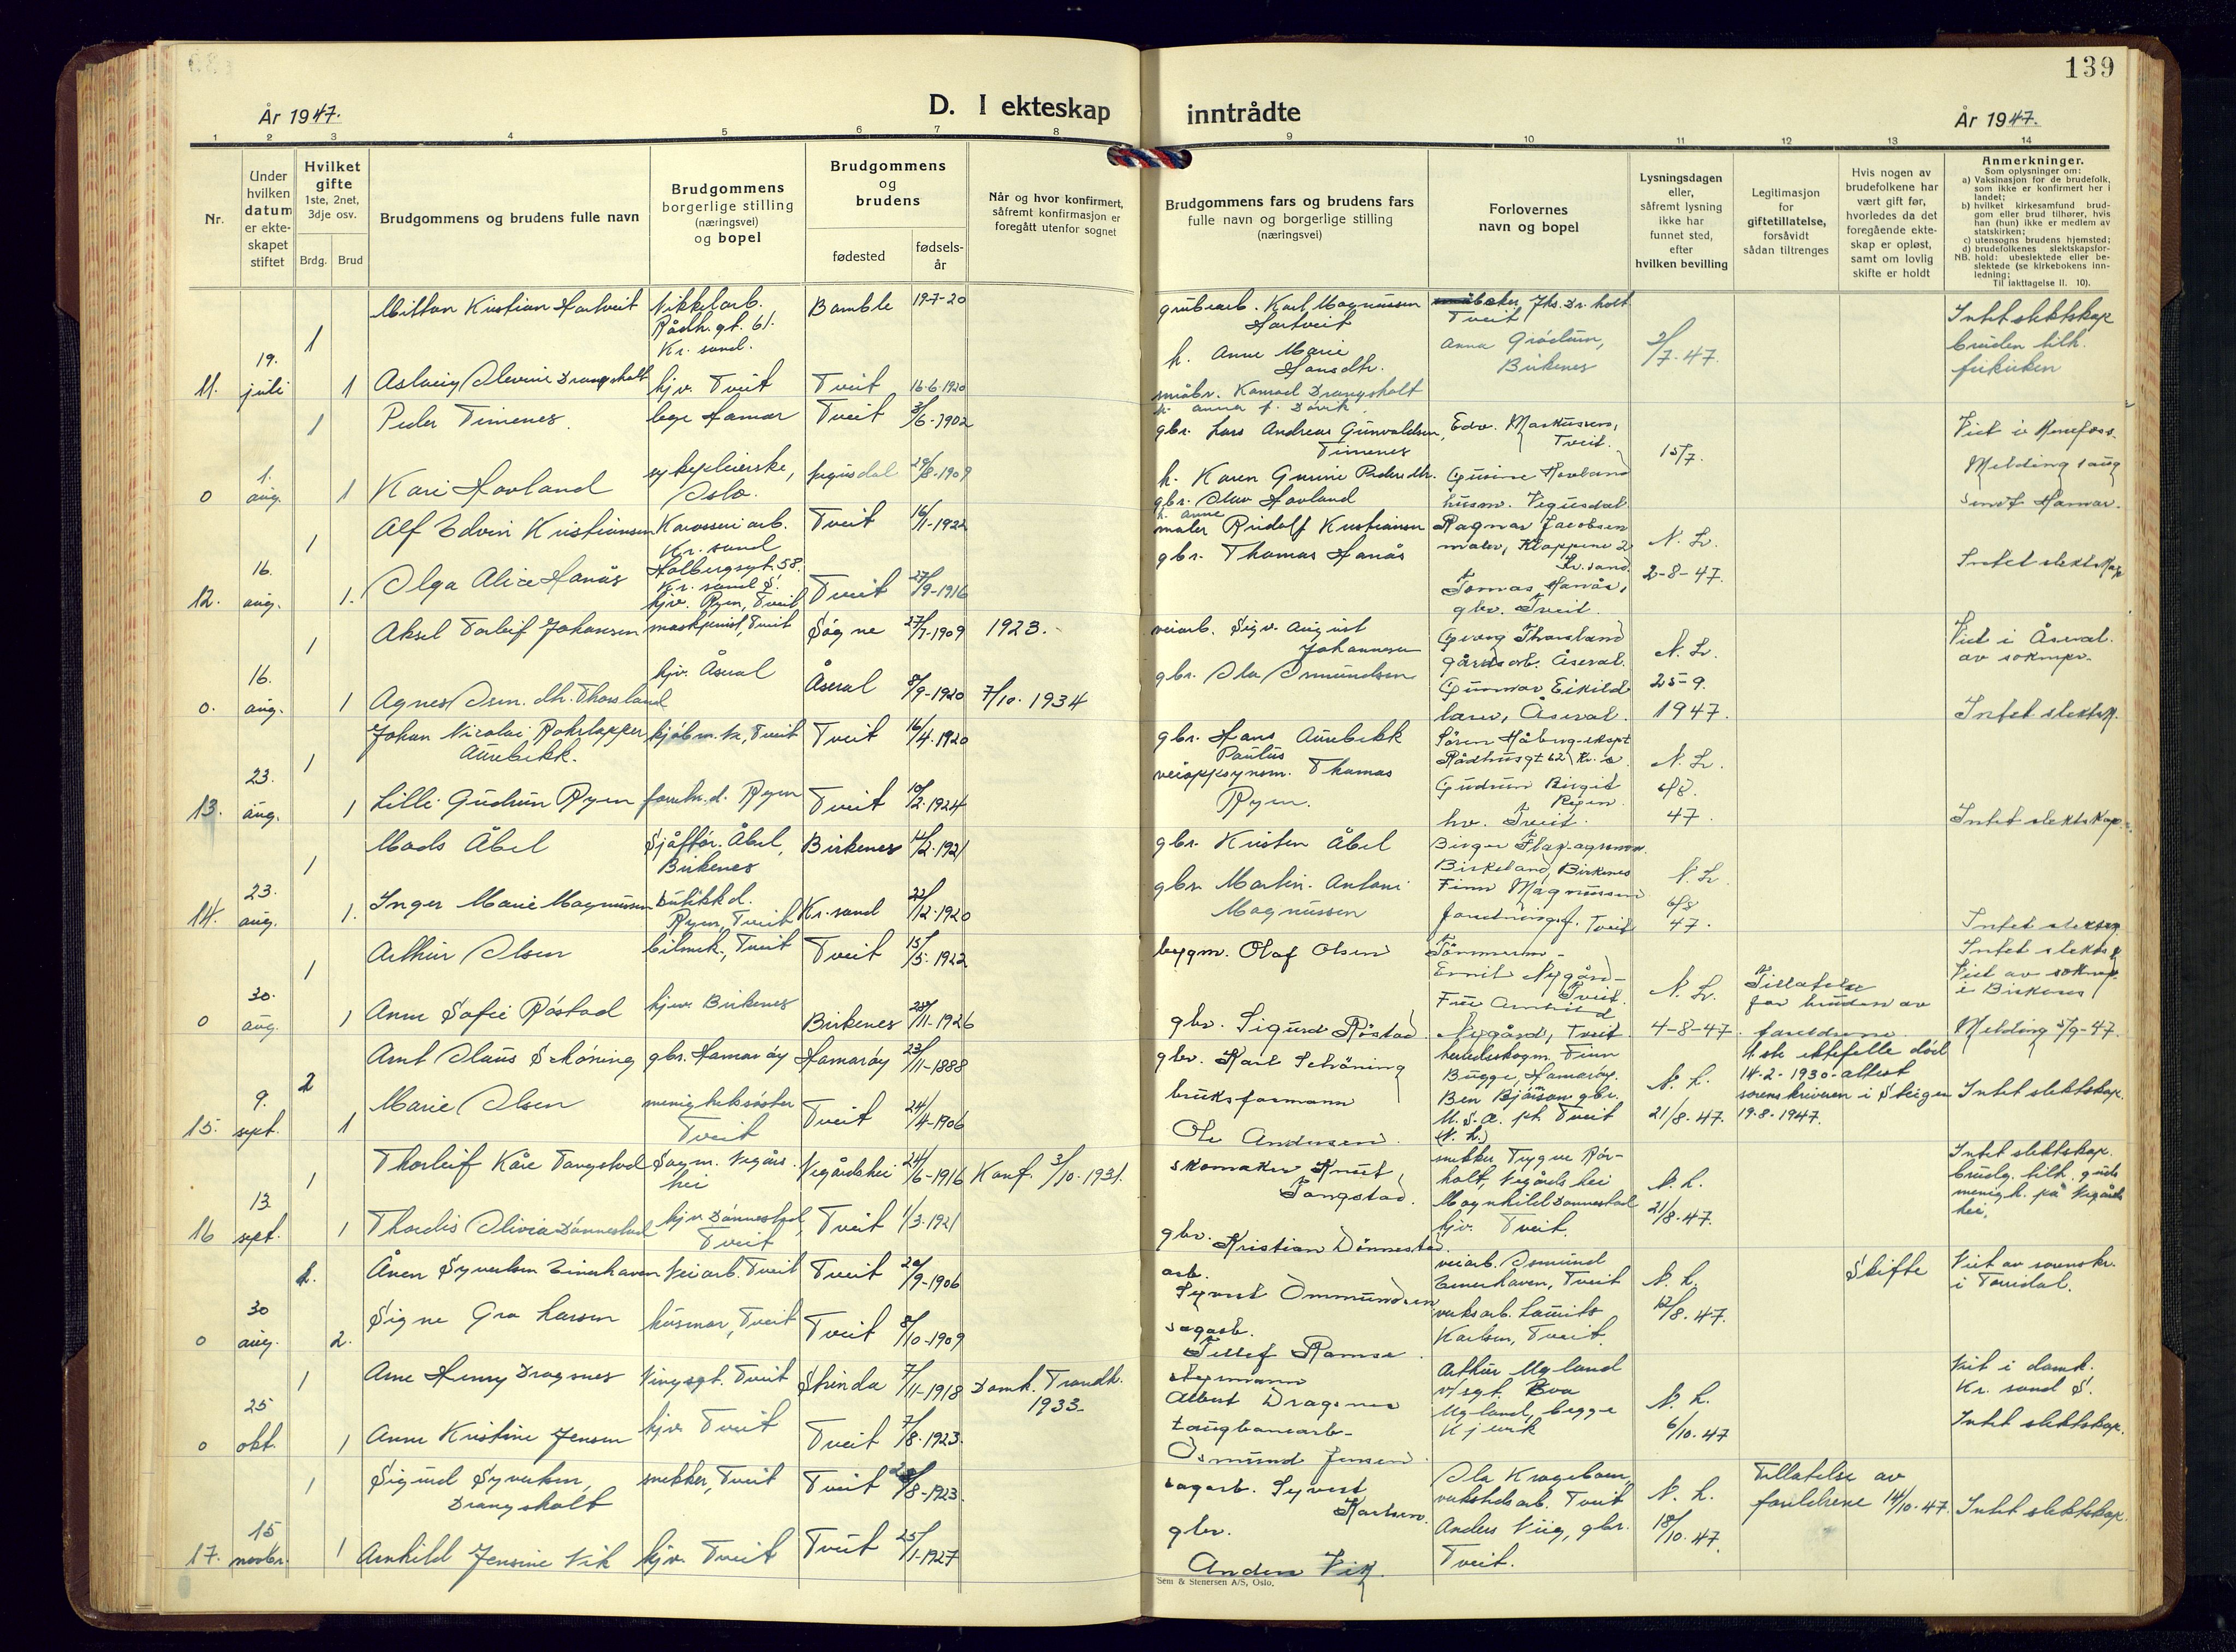 139
År 1947.
D. I ekteskap inntrådte
År 1947.
1 2 3 4 5 6 7 8 9 10 11 12 13 14
Nr.
Under hvilken datum er ekte- skapet stiftet
Hvilket gifte 1ste, 2net, 3dje osv.
Brdg. Brud
Brudgommens og brudens fulle navn
Brudgommens borgerlige stilling (næringsvei) og bopel
Brudgommens og brudens
fødested
fødsels- år
Når og hvor konfirmert, såfremt konfirmasjon er foregått utenfor sognet
Brudgommens fars og brudens fars fulle navn og borgerlige stilling (næringsvei)
Forlovernes navn og bopel
Lysningsdagen eller, såfremt lysning ikke har funnet sted, efter hvilken bevilling
Legitimasjon for giftetillatelse, forsåvidt sådan tiltrenges
Hvis nogen av brudefolkene har vært gift før, hvorledes da det foregående ekte- skap er opløst, samt om lovlig skifte er holdt
Anmerkninger.
Som oplysninger om:
a) Vaksinasjon for de brudefolk, som ikke er konfirmert her i landet;
b) hvilket kirkesamfund brud- gom eller brud tilhører, hvis han (hun) ikke er medlem av statskirken;
c) utensogns brudens hjemsted;
d) brudefolkenes slektskapsfor- hold: ubeslektede eller be- slektede (se kirkebokens inn- ledning;
NB.
Til iakttagelse II. 10).
1 Milton Kristian Hartveit Nikkelarb. Rådh.gt. 61. Kr. sand. Bamble 19-7-20 Karl Magnussen Hartveit Tveit Intet slektskap
h. Anne Marie Hansdh. Anna Birkenes 2/7-47. bruden tilh. frikirken
11. 19. juli 1 Aslaug Olevine Drangsholt hjv. Tveit Tveit 16-6-1920 småbr. Konrad Drangsholt
1 Peder Timenes lege Hamar Tveit 3/6-1902 gbr. Lars Andreas Gunvaldsen Timenes Edv. Markussen, Tveit. 15/7. Viet i
0 1. aug. 1 Kari Hovland sykepleierske, Oslo. Vegusdal 29/8-1909 h. Karen Gurine Pedersdh. gbr. Olav Hovland h. Anne Hovland husm. Vegusdal Melding 1 aug Hamar.
1 Alf Edvin Kristiansen Karosseriarb. Kr. sand Holbergsgt. 58. Tveit 16/1-1922 maler Rudolf Kristiansen Ragnar Jacobsen maler, Kr. sand N. L.
12. 16. aug. 1. Olga Alice Hanås Kr. sand S. hjv. Ryen, Tveit Tveit 27/9-1916 gbr. Thomas Hanås Tomas Hanås, gbr. Tveit. 2-8-47. Intet slektskap
1 Aksel Torleif Johansen maskinist, Tveit Søgne 27/7-1909 1923. veiarb. Sigv. August Johannesen Georg Thorsland gårdsarb. Åseral. N. L. Viet i Åseral. av soknepr.
0. 16. aug. 1 Agnes Osm. dh. Thorsland hjv. Åseral Åseral 8/9-1920 7/10. 1934 gbr. Ola Osmundsen Gunnar Eikild Åseral. 25-9. 1947. Intet slektsk.
1 Johan Nicolai Aurebekk. Tveit Tveit 16/4-1920 gbr. Hans Paulus Aurebekk Sören Håberg-ekspt. Rådhusgt 62 Kr. s. N. L.
13. 23. aug. 1 Lilli Gudrun Ryen Ryen Tveit 10/2-1924 veioppsynsm. Thomas Ryen. Gudrun Birgit Ryen hv. Tveit. 4/8. 47. Intet slektskap.
1 Mads Åbel Sjåffør. Åbel, Birkenes Birkenes 14/2-1921 gbr. Kristen Åbel Birger Birkeland, Birkenes N. L.
14. 23. aug. 1. Inger Marie Magnussen butikkd. Ryen, Tveit Kr. sand 22/12-1920 gbr. Martin Antoni Magnussen Finn Magnussen Tveit 6/8 47. Intet slektsk.
1 Arthur Olsen bilmek., Tveit Tveit 15/5-1922 bygm. Olaf Olsen Tömmerm. Emil Nygård Tveit. N. L. Tillatelse for bruden av foreldrene Intet slektsk Viet av soknepr. i Birkenes
0 30. aug. 1 Anne Sofie Røstad hjv. Birkenes Birkenes 28/11-1926 gbr. Sigurd Røstad Nygård, Tveit 4-8-47. Melding 5/9-47.
2 Arnt Olaus Schöning gbr. Hamarøy Hamarøy 23/11-1888 gbr. Karl Schöning herredsskogm. Finn Bugge, Hamarøy. N. L. 1ste ektefelle død 14-2-1930-attest sorenskriveren i Steigen 19-8-1947. Intet slektskap.
15. 9. sept. 1 Marie Olsen menighetssøster Tveit Tveit 24/4-1906 bruksformann Ole Andersen. Ben Bjårson gbr. U.S.A. pt. Tveit (N. L.) 21/8-47.
1 Thorleif Kåre Tangstad Vegårshei Vegårdshei 24/6-1916 Konf. 3/10-1931. skomaker Knut Tangstad. snekker Trygve holt, Vegårdshei N. L. Intet slektskap. brudg. tilh. guds menigh. på Vegårdshei.
16 13 sept. 1 Thordis Olivia Dønnestad hjv. Dønnestad, Tveit Tveit 1/3-1921 gbr. Kristian Dønnestad. Magnhild Dønnestad hjv. Tveit. 21/8-47.
2. Ånen Syvertsen Veiarb. Tveit Tveit 20/9-1906 arb. Syvert Ommundsen veiarb. Osmund Tveit N. L. Skifte Viet av sorenskr. i Torridal.
0 30 aug. 2. Signe Gro Larsen husmor, Tveit Tveit 8/10-1909 sagarb. Tellef Ramse verksarb. Laurits Karlsen, Tveit. 12/8-47.
1 Arne Henry Dragsnes Tveit Strinda 7/11-1918 Domk. Trondh. 1933. styrmann Albert Dragsnes Arthur Ugland N. L. Viet i domk. Kr. sand S.
0 25 okt. 1 Anne Kristine Jensen hjv. Tveit Tveit 7/8-1923. taugbanearb. Osmund Jensen Ugland, begge Kjevik 6/10-47 Intet slektskap.
1 Sigurd Syvertsen, Drangsholt snekker, Tveit Tveit /8-1923. sagarb. Syvert Karlsen Ola Krogeboen, verkstedsarb. Tveit N. L. Tillatelse av foreldrene 14/10-47. Intet slektskap.
17. 15 novbr. 1 Arnhild Jensine Vik hjv. Tveit Tveit 25/1-1927 gbr. Anders Vik. Anders Viig, gbr. Tveit. 18/10-47.
Sem & Stenersen A/S, Oslo.